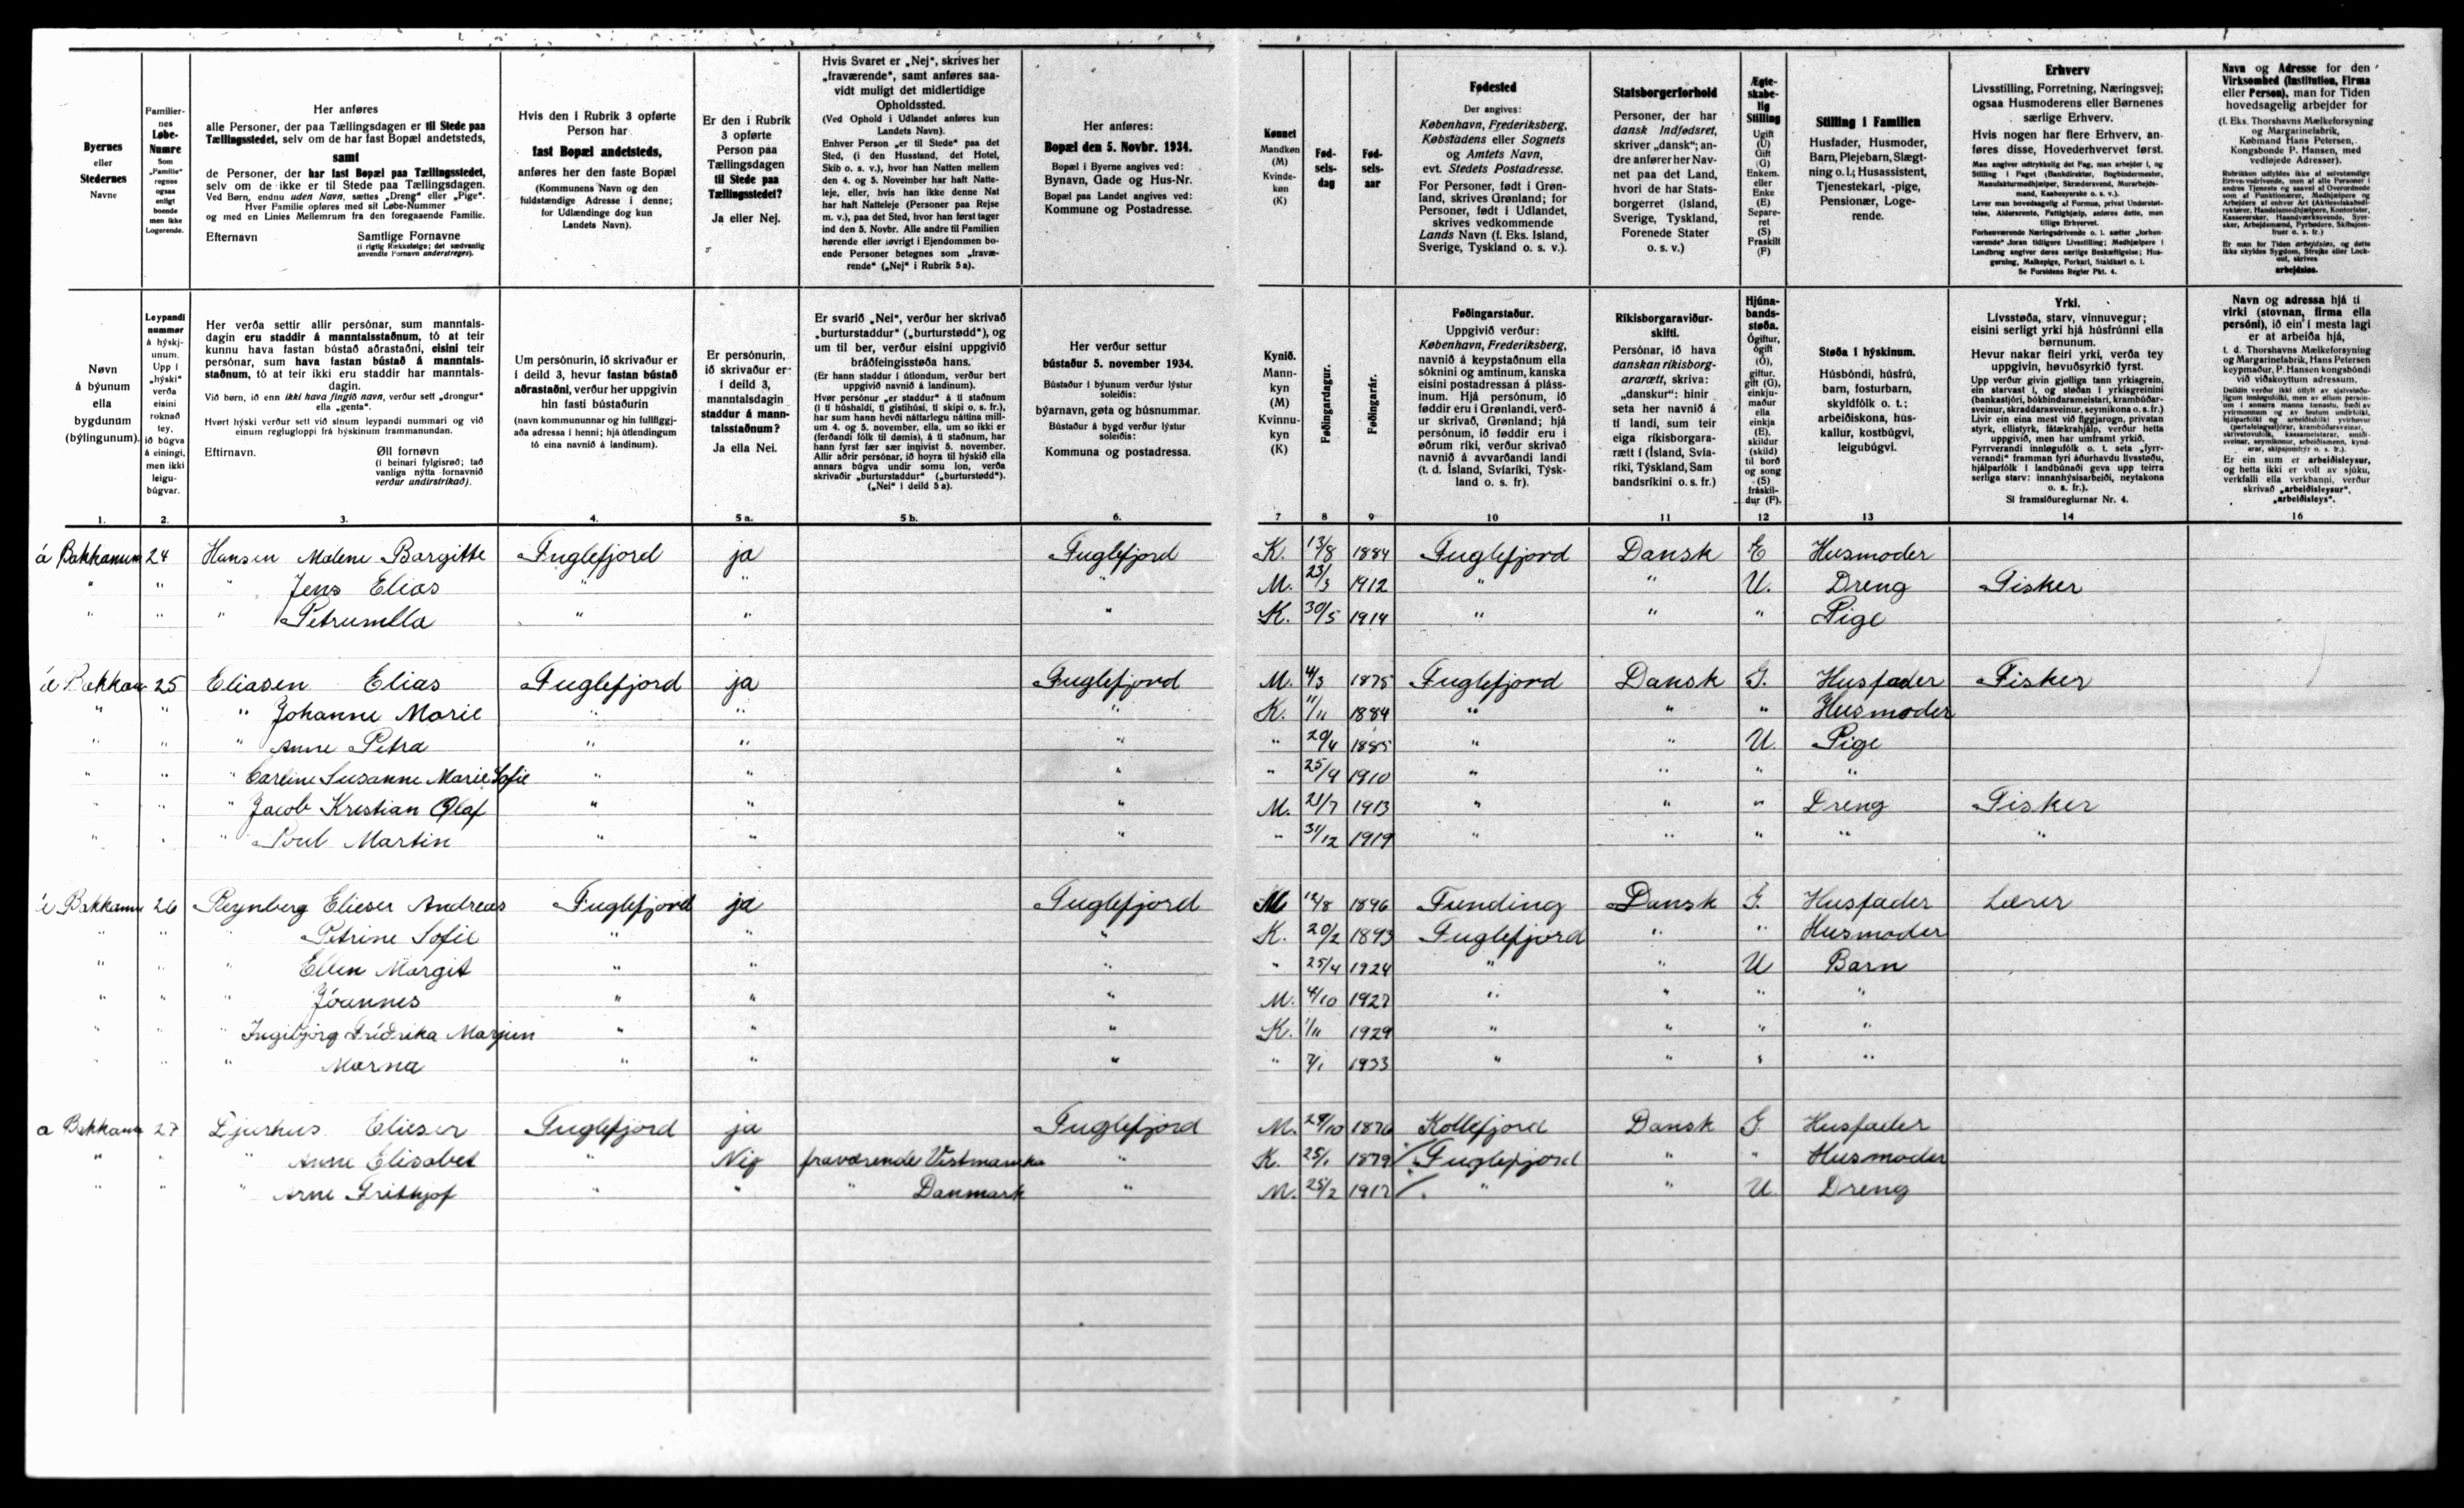 Byernes eller Stedernes Navne
Familiernes Løbe-Numre Som „Familie“ regnes ogsaa enligt boende men ikke Logerende.
Her anføres alle Personer, der paa Tællingsdagen er til Stede paa Tællingsstedet, selv om de har fast Bopæl andetsteds, samt de Personer, der har fast Bopæl paa Tællingsstedet, selv om de ikke er til Stede paa Tællingsdagen. Ved Børn, endnu uden Navn, sættes „Dreng“ eller „Pige“. Hver Familie opføres med sit Løbe-Nummer og med en Linies Mellemrum fra den foregaaende Familie.
Efternavn Samtlige Fornavne (i rigtig Rækkefølge; det sædvanlig anvendte Fornavn understreges).
Hvis den i Rubrik 3 opførte Person har fast Bopæl andetsteds, anføres her den faste Bopæl (Kommunens Navn og den fuldstændige Adresse i denne; for Udlændinge dog kun Landets Navn).
Er den i Rubrik 3 opførte Person paa Tællingsdagen til Stede paa Tællingsstedet? Ja eller Nej.
Hvis Svaret er „Nej“, skrives her „fraværende“, samt anføres saavidt muligt det midlertidige Opholdssted. (Ved Ophold i Udlandet anføres kun Landets Navn). Enhver Person „er til Stede“ paa det Sted, (i den Husstand, det Hotel, Skib o. s. v.), hvor han Natten mellem den 4. og 5. November har haft Natteleje, eller, hvis han ikke denne Nat har haft Natteleje (Personer paa Rejse m. v.), paa det Sted, hvor han først tager ind den 5. Novbr. Alle andre til Familien hørende eller iøvrigt i Ejendommen boende Personer betegnes som „fraværende“ („Nej“ i Rubrik 5 a).
Her anføres: Bopæl den 5. Novbr. 1934. Bopæl i Byerne angives ved: Bynavn, Gade og Hus-Nr. Bopæl paa Landet angives ved: Kommune og Postadresse.
Kønnet Mandkøn (M) Kvindekøn (K)
Fødselsdag
Fødselsaar
Fødested Der angives: København, Frederiksberg, Købstadens eller Sognets og Amtets Navn, evt. Stedets Postadresse. For Personer, født i Grønland, skrives Grønland; for Personer, født i Udlandet, skrives vedkommende Lands Navn (f. Eks. Island, Sverige, Tyskland o. s. v.).
Statsborgerforhold Personer, der har dansk Indfødsret, skriver „dansk“; andre anfører her Navnet paa det Land, hvori de har Statsborgerret (Island, Sverige, Tyskland, Forenede Stater o. s. v.)
Ægteskabelig Stilling Ugift (U) Gift (G) Enkem. eller Enke (E) Separeret (S) Fraskilt (F)
Stilling i Familien Husfader, Husmoder, Barn, Plejebarn, Slægtning o. l.; Husassistent, Tjenestekarl, -pige, Pensionær, Logerende.
Erhverv Livsstilling, Forretning, Næringsvej; ogsaa Husmoderens eller Børnenes særlige Erhverv. Hvis nogen har flere Erhverv, anføres disse, Hovederhvervet først. Man angiver udtrykkelig det Fag, man arbejder i, og Stilling i Faget (Bankdirektør, Bogbindermester, Manufakturmedhjælper, Skrædersvend, Murarbejdsmand, Kaabesyerske o. s. v.). Lever man hovedsagelig af Formue, privat Understøttelse, Aldersrente, Fattighjælp, anføres dette, men tillige Erhvervet. Forhenværende Næringsdrivende o. l. sætter „forhenværende“ foran tidligere Livsstilling; Medhjælpere i Landbrug angiver deres særlige Beskæftigelse; Husgerning, Malkepige, Forkarl, Staldkarl o. l. Se Forsidens Regler Pkt. 4.
Navn og Adresse for den Virksomhed (Institution, Firma eller Person), man for Tiden hovedsagelig arbejder for (f. Eks. Thorshavns Mælkeforsyning og Margarinefabrik, Købmand Hans Petersen, Kongsbonde P. Hansen, med vedføjede Adresser). Er man for Tiden arbejdsløs, og dette ikke skyldes Sygdom, Strejke eller Lockout, skrives arbejdsløs.
Nøvn á býunum ella bygdunum (býlingunum).
Leypandi nummør á hýskjunum. Upp í „hýski“ verða eisini roknað tey, ið búgva á einingi, men ikki leigubúgvar.
Her verða settir allir persónar, sum manntalsdagin eru staddir á manntalsstaðnum, tó at teir kunnu hava fastan bústað aðrastaðni, eisini teir persónar, sum hava fastan bústað á manntalsstaðnum, tó at teir ikki eru staddir har manntalsdagin. Við børn, ið enn ikki hava fingið navn, verður sett „drongur“ ella „genta“. Hvørt hýski verður sett við sínum leypandi nummari og við einum reglugloppi frá hýskinum frammanundan.
Eftirnavn. Øll fornøvn (í beinari fylgisrøð; tað vanliga nýtta fornavnið verður undirstrikað).
Um persónurin, ið skrivaður er í deild 3, hevur fastan bústað aðrastaðni, verður her uppgivin hin fasti bústaðurin (navn kommununnar og hin fullfíggjaða adressa í henni; hjá útlendingum tó eina navnið á landinum).
Er persónurin, ið skrivaður er í deild 3, manntalsdagin staddur á manntalsstaðnum? Ja ella Nei.
Er svarið „Nei“, verður her skrivað „burturstaddur“ („burturstødd“), og um til ber, verður eisini uppgivið bráðfeingisstøða hans. (Er hann staddur í útlondum, verður bert uppgivið navnið á landinum). Hvør persónur „er staddur“ á tí staðnum (í tí húshaldi, tí gistihúsi, tí skipi o. s. fr.), har sum hann hevði náttarlegu náttina millum 4. og 5. november, ella, um so ikki er (ferðandi fólk til dømis), á tí staðnum, har hann fyrst fær sær innivist 5. november. Allir aðrir persónar, ið hoyra til hýskið ella annars búgva undir somu lon, verða skrivaðir „burturstaddur“ („burturstødd“). („Nei“ í deild 5 a).
Her verður settur bústaður 5. november 1934. Bústaður í býunum verður lýstur soleiðis: býarnavn, gøta og húsnummar. Bústaður á bygd verður lýstur soleiðis: Kommuna og postadressa.
Kynið. Mannkyn (M) Kvinnukyn (K)
Føðingardagur.
Føðingarár.
Føðingarstaður. Uppgivið verður: København, Frederiksberg, navnið á keypstaðnum ella sóknini og amtinum, kanska eisini postadressan á plássinum. Hjá persónum, ið føddir eru í Grønlandi, verður skrivað, Grønland; hjá persónum, ið føddir eru í øðrum ríki, verður skrivað navnið á avvarðandi landi (t. d. Ísland, Svíaríki, Týskland o. s. fr).
Ríkisborgaraviðurskifti. Persónar, ið hava danskan ríkisborgararætt, skriva: „danskur“: hinir seta her navnið á tí landi, sum teir eiga ríkisborgararætt í (Ísland, Svíaríki, Týskland, Sambandsríkini o. s. fr.)
Hjúnabandsstøða. Ógiftur, ógift (Ó), giftur, gift (G), einkjumaður ella einkja (E), skildur (skild) til borð og song (S) fráskildur (F).
Støða í hýskinum. Húsbóndi, húsfrú, barn, fosturbarn, skyldfólk o. t.; arbeiðiskona, húskallur, kostbúgvi, leigubúgvi.
Yrki. Lívsstøða, starv, vinnuvegur; eisini serligt yrki hjá húsfrúnni ella børnunum. Hevur nakar fleiri yrki, verða tey uppgivin, høvuðsyrkið fyrst. Sí framsíðureglurnar Nr. 4.
Navn og adressa hjá tí virki (stovnan, firma ella persóni), ið ein í mesta lagi er at arbeiða hjá, t. d. Thorshavns Mælkeforsyning og Margarinefabrik, Hans Petersen keypmaður, P. Hansen kongsbóndi við viðskoyttum adressum. Er ein sum er arbeiðisleysur, og hetta ikki er volt av sjúku, verkfalli ella verkbanni, verður skrivað „arbeiðisleysur“, „arbeiðisleys“.
1. 2. 3. 4. 5 a. 5 b. 6. 7 8 9 10 11 12 13 14 16
á Bakkanum 24 Hansen Malene Bargitte Fuglefjord ja Fuglefjord K. 13/8 1884 Fuglefjord Dansk E Husmoder
" " " Jens Elias " " " M. 23/3 1912 " " U. Dreng Fisker
" " " Petrunella " " " K. 30/5 1914 " " " Pige
á Bakkan 25 Eliasen Elias Fuglefjord ja Fuglefjord M. 4/3 1875 Fuglefjord Dansk G. Husfader Fisker
" " " Johanne Marie " " " K. 11/11 1884 " " " Husmoder
" " " Anne Petra " " " " 20/4 1885 " " U. Pige
" " " Carline Susanne Marie Sofie " " " " 25/9 1910 " " " "
" " " Jacob Kristian Olaf " " " M. 21/7 1913 " " " Dreng Fisker
" " " Poul Martin " " " " 31/12 1919 " " " " "
á Bakkanum 26 Reynberg Elieser Andreas Fuglefjord ja Fuglefjord M 12/8 1896 Funding Dansk G. Husfader Lærer
" " " Petrine Sofie " " " K. 20/2 1893 Fuglefjord " " Husmoder
" " " Ellen Margit " " " " 25/4 1924 " " U Barn
" " " Jóannes " " " M. 4/10 1927 " " " "
" " " Ingibjørg Frídrika Marjun " " " K. 1/11 1929 " " " "
" " " Marna " " " " 7/1 1933 " " " "
a Bakkanum 27 Djurhus Elieser Fuglefjord ja Fuglefjord M. 29/10 1876 Kollefjord Dansk G Husfader
" " " Anne Elisabet " Nej fraværende Vestmanha " K. 25/1 1879 Fuglefjord " " Husmoder
" " " Arne Frithjof " " " Danmark " M. 25/2 1917 " " U Dreng